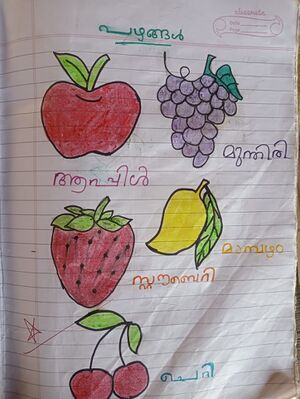 classmate
Date
Page
പഴങ്ങൾ
മുന്തിരി
ആപ്പിൾ
മാമ്പഴം
സ്ട്രോബെറി
ചെറി